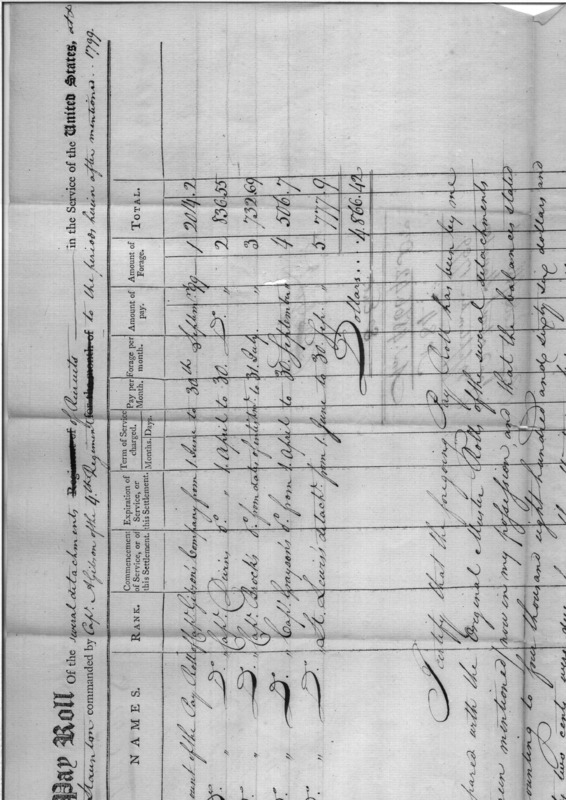 Pay Roll Of the several detachments Regiment of of Recruits in the Service of the United States, at
Staunton commanded by Capt. A Gibson of the 4th Regiment for the month of to the periods herein after mentioned .. 1799.
NAMES. RANK. Commencement of Service, or of this Settlement. Expiration of Service, or this Settlement. Term of Service charged. Months. Days. Pay per Month. Forage per month. Amount of pay. Amount of Forage. TOTAL.
ount of the Pay Roll of Capt. Gibson's Company from 1 June to 30th Septemr. 99 1 2014.2
" Do. " Capt. Do. " 1 April to 30. Do. " 2 836.55
" Do. " Capt. Brock's Do. from dates of enlistmt. to 31 July. " 3 732.69
" Do. " Capt. Grayson's Do. from 1 April to 30. September " 4 506.7
" Do. " Lt. Lewis's detacht. from 1. June to 30 Sep. " 5 777.9
Dollars ... 4,866.42
I certify that the foregoing Pay Roll has been by me
pared with the Original Muster Rolls of the several detachments
ein mentioned now in my possession and that the balances stated
ounting to four thousand eight hundred and sixty six dollars and
two cents were due